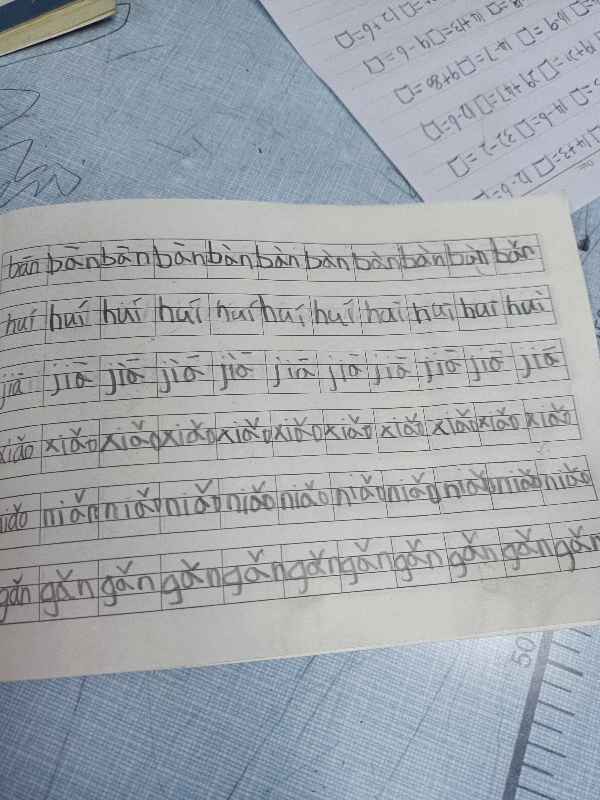 12+6=□
14+5=□ 9-6=□
19-9=□ 14-7=□ 9+80=□
bān bān bān bān bàn bàn bàn bàn bàn bàn bǎn
huí huí huí huí huí huí huí huí huí huí huì
jiā jiā jiā jiā jiā jiā jiā jiā jiā jiā jiā
xiǎo xiǎo xiǎo xiǎo xiǎo xiǎo xiǎo xiǎo xiǎo xiǎo xiǎo
niǎo niǎn niǎo niǎo niǎo niǎo niǎo niǎo niǎo niǎo niǎo
gǎn gǎn gǎn gǎn gǎn gǎn gǎn gǎn gǎn gǎn gǎn
50